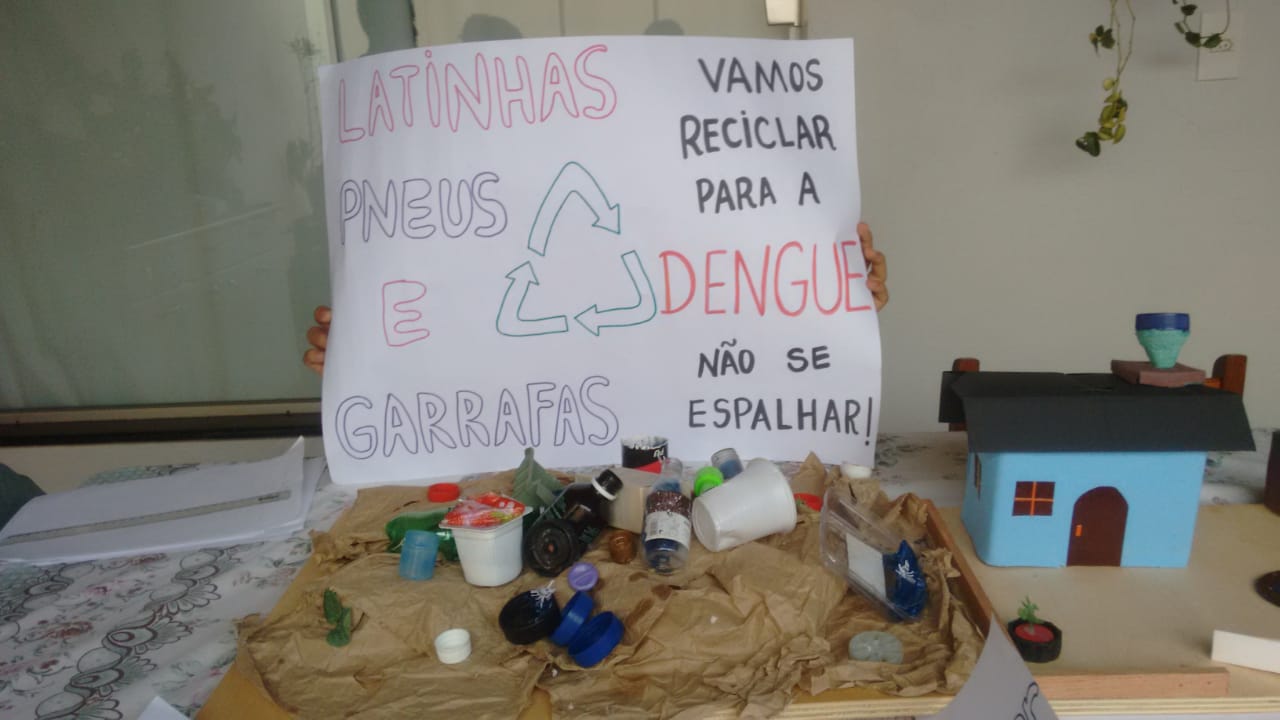 LATINHAS
PNEUS
E
GARRAFAS
VAMOS
RECICLAR
PARA A
DENGUE
NÃO SE
ESPALHAR!